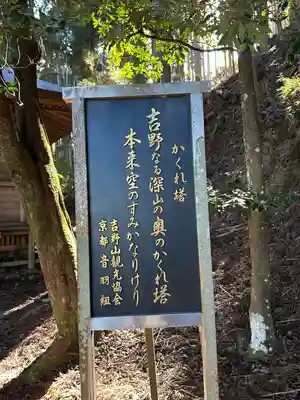 かくれ塔
吉野なる深山の奥のかくれ塔
本来空のすみかなりけり
吉野山観光協会
京都音羽組